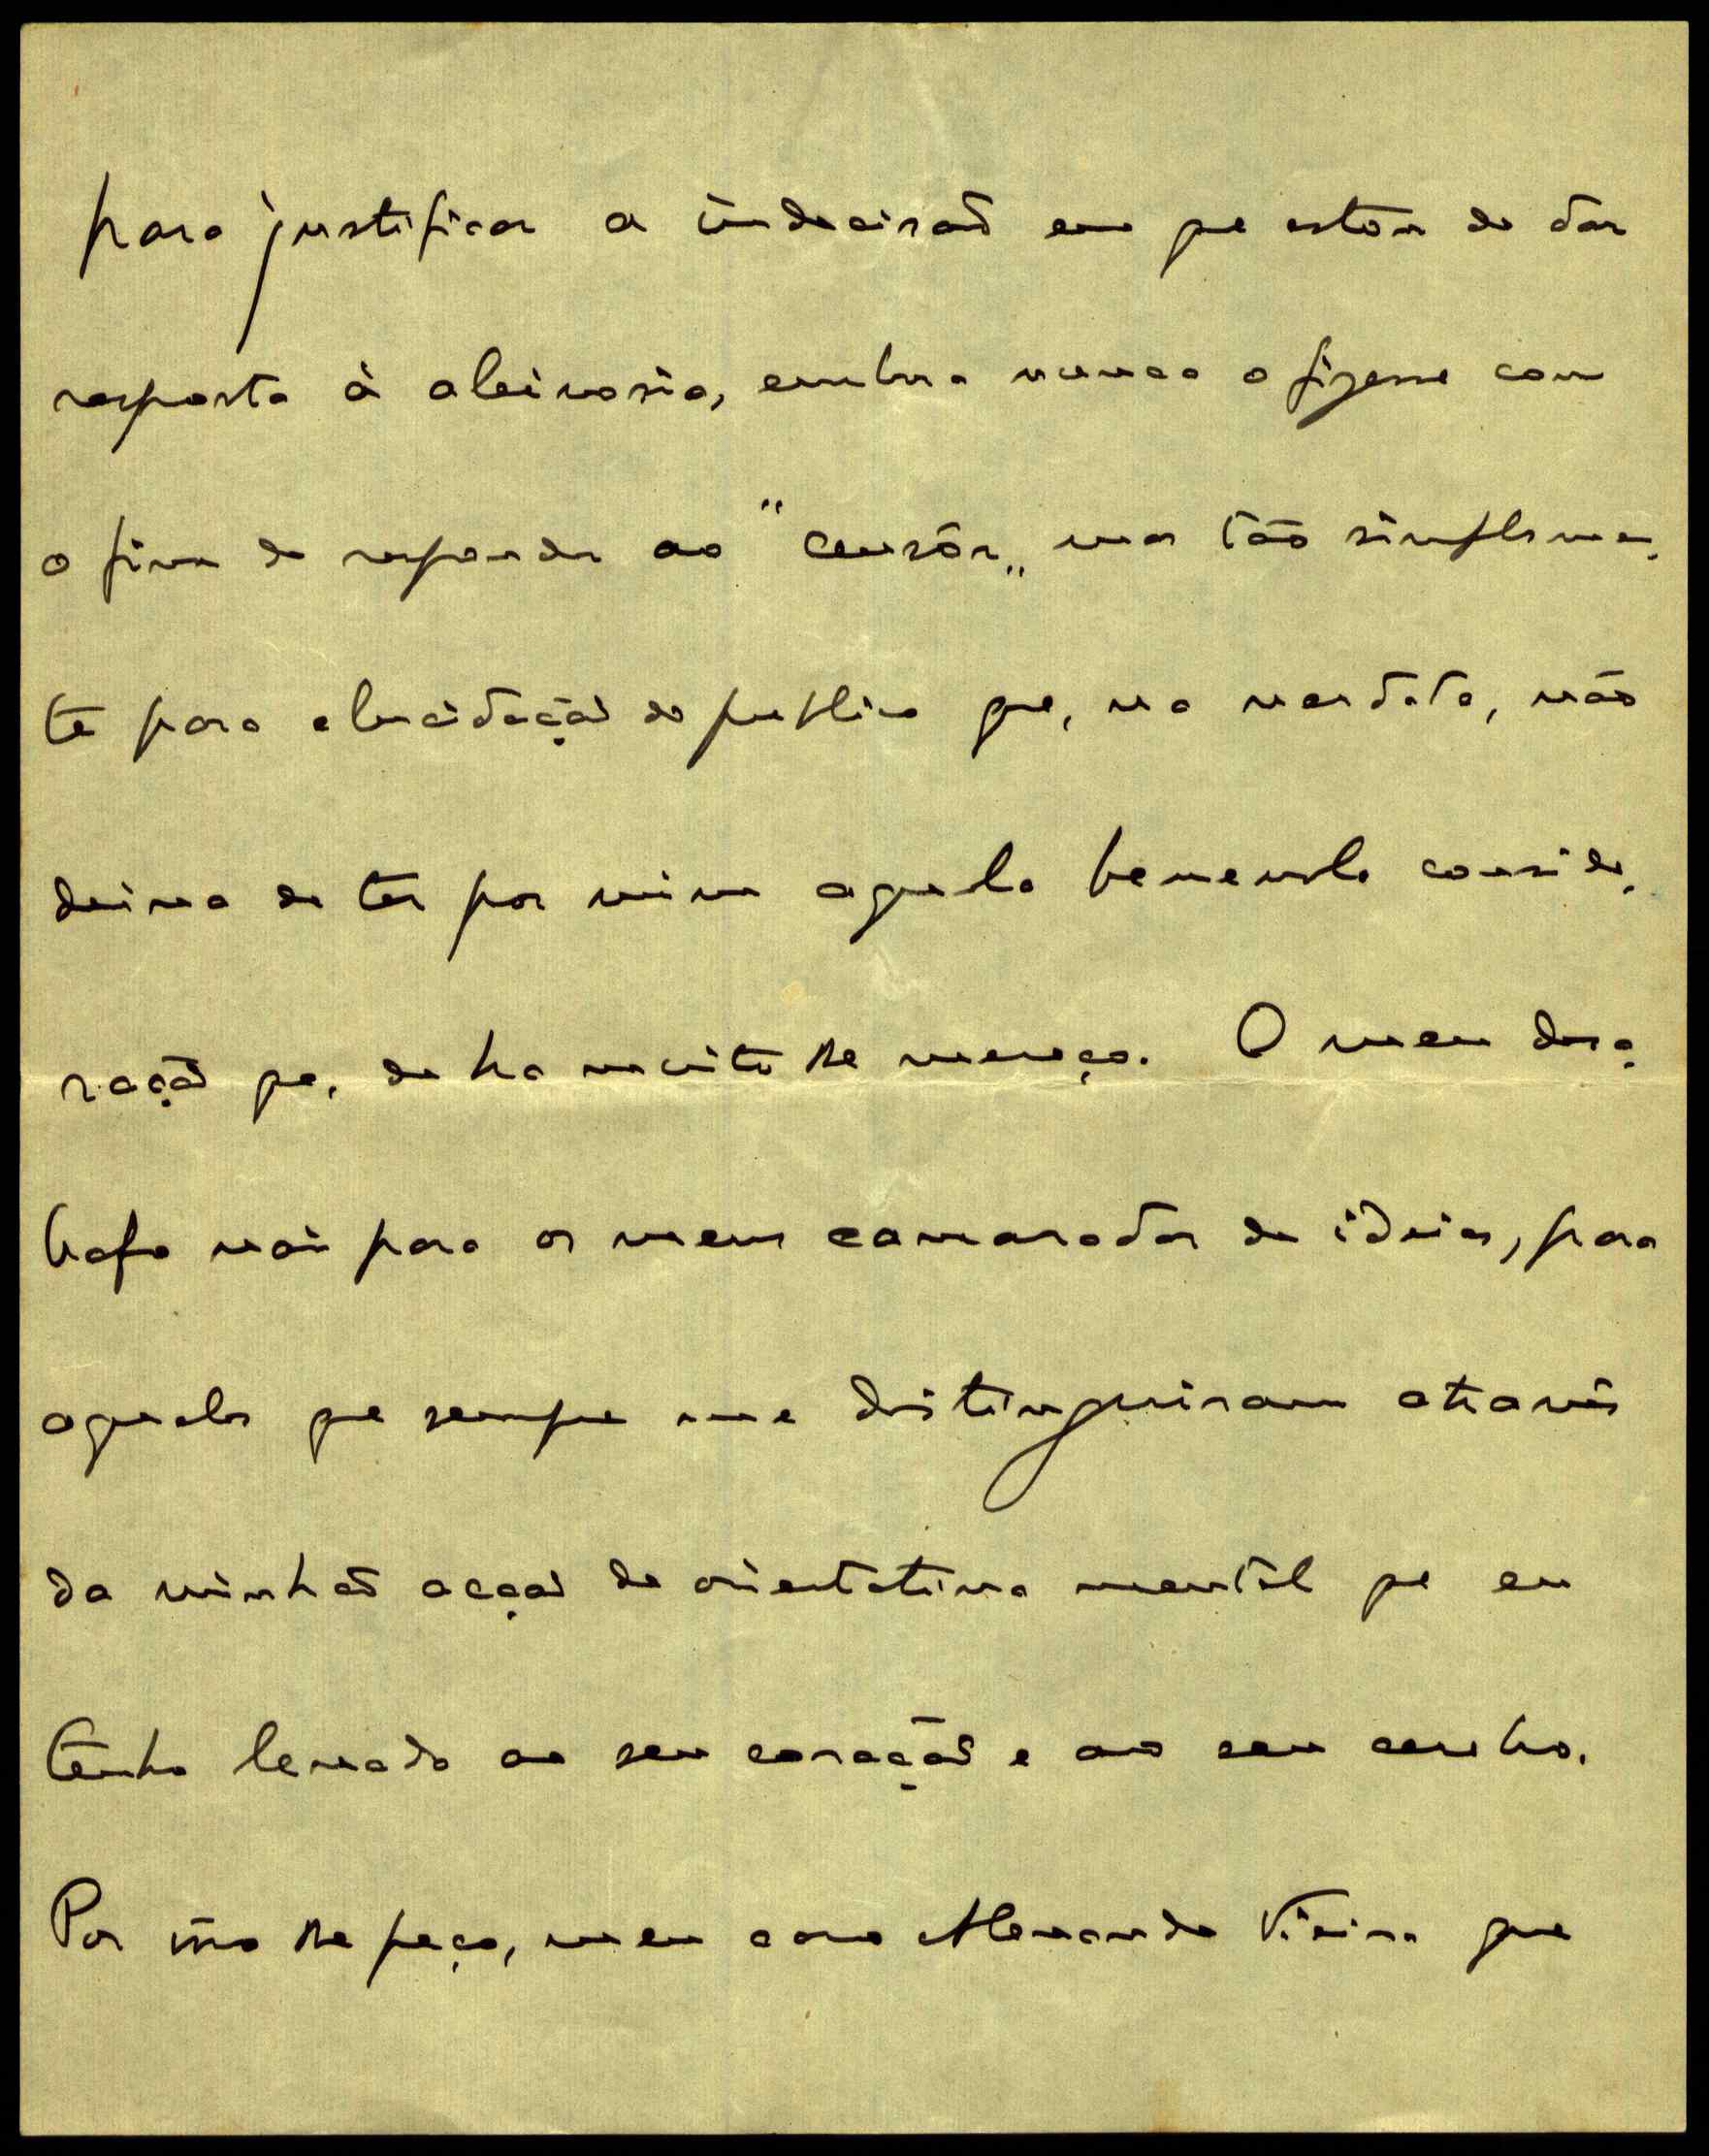 para justificar a indecisão em que estou de dar
resposta à aleivosia, embora nunca o fizesse com
o fim de responder ao "censôr" mas tão simplesmen-
te para elucidação do publico que, na verdade, não
deixa de ter por mim aquela benevola conside-
ração que, de ha muito lhe mereço. O meu desa-
bafo vai para os meus camaradas de ideias, para
aqueles que sempre me distinguiram através
da minha acção de orientativa mental que eu
tenho levado ao seu coração e ao seu cerebro.
Por isso lhe peço, meu caro Alexandre Vieira que